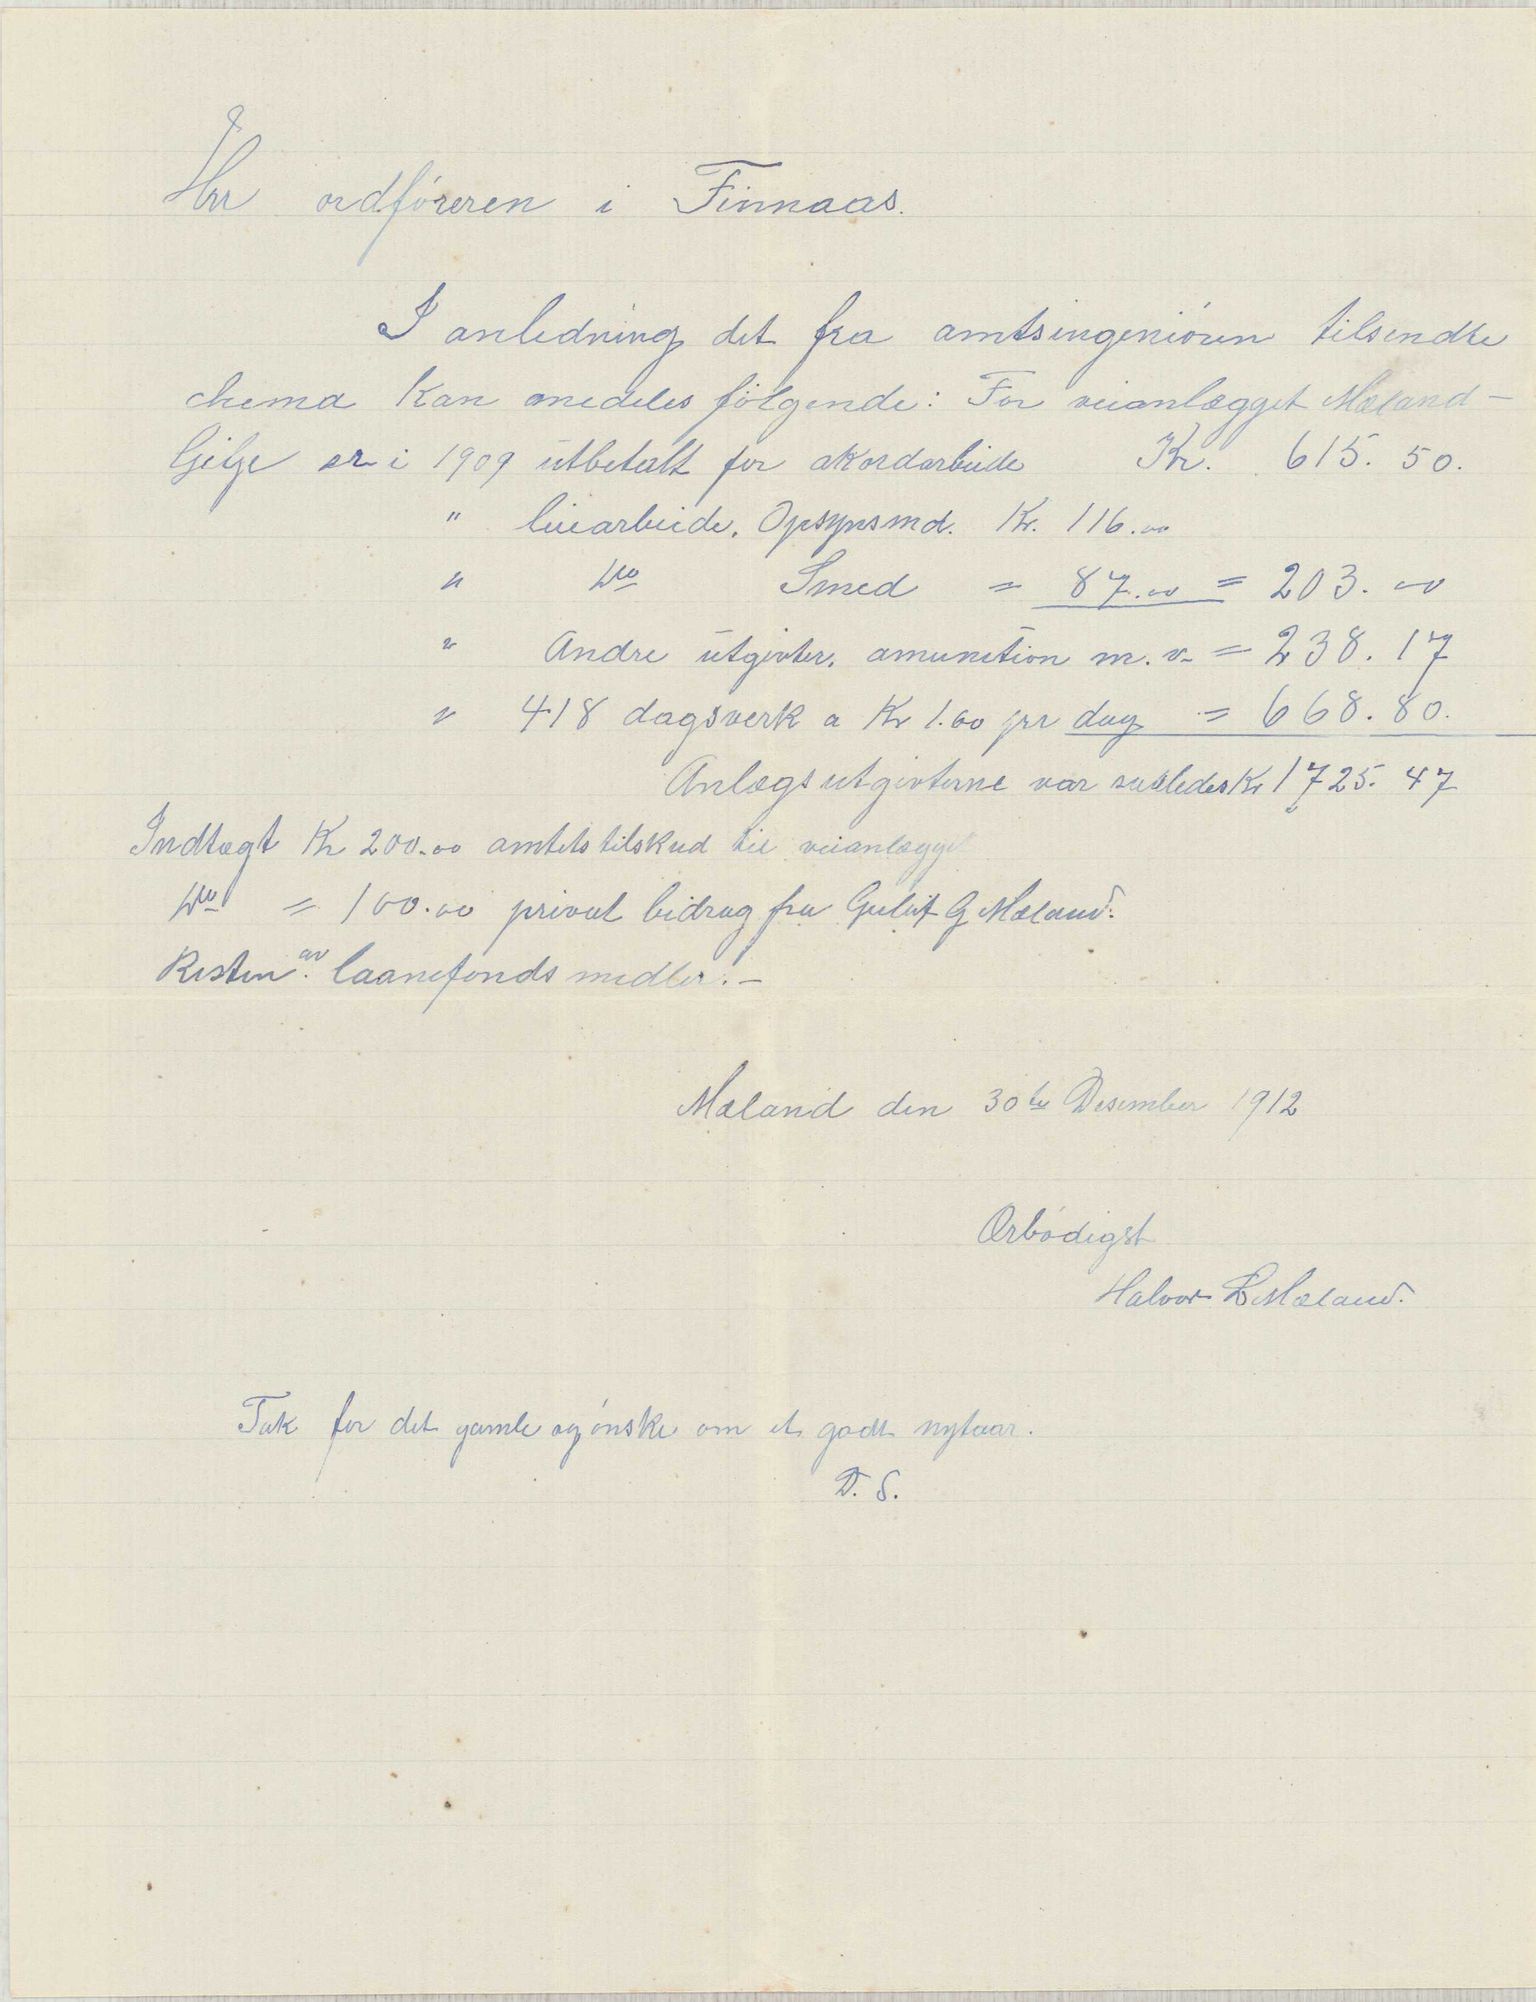 Hrr ordföreren i Finnaas.
I anledning det fra amtsingeniören tilsendte
chema kan medeles fölgende: For veianlægget Mæland-
er i 1909 utbetalt for akordarbeide Kr. 615.50.
" leiearbeide. Opsynsmd. Kr. 116.00
" Do Smed = 87.00 = 203.00
" Andre utgivter. amunition m.v. = 238.17
" 418 dagsverk a Kr 1.60 prr dag = 668.80.
Anlægsutgivterne var saaledes Kr 1725.47
Indtægt Kr 200.00 amtets tilskud til veianlægget
Do = 100.00 privat bidrag fra G Mæland.
Resten av laanefonds midler. -
Mæland den 30te Desember 1912
Ærbödigst
Halvor L Mæland.
Tak for det gamle og önske om et godt nytaar.
D. S.